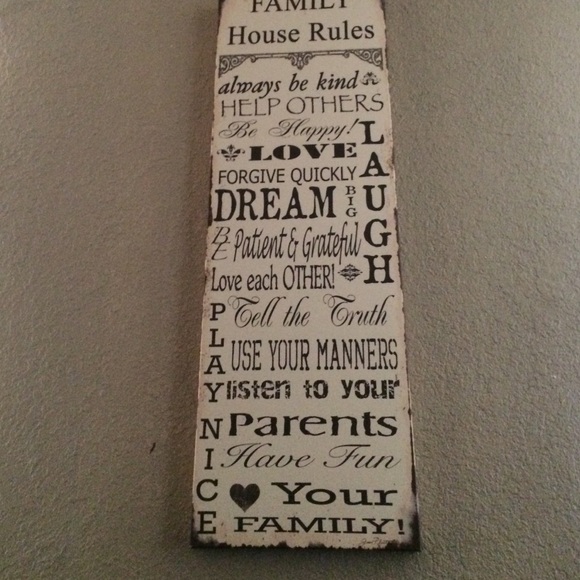 FAMILY
House Rules
always be kind
HELP OTHERS
Be Happy!
LOVE
LAUGH
FORGIVE QUICKLY
DREAM BIG
BE Patient & Grateful
Love each OTHER!
PLAY NICE
Tell the Truth
USE YOUR MANNERS
listen to your
Parents
Have Fun
♥ Your
FAMILY!